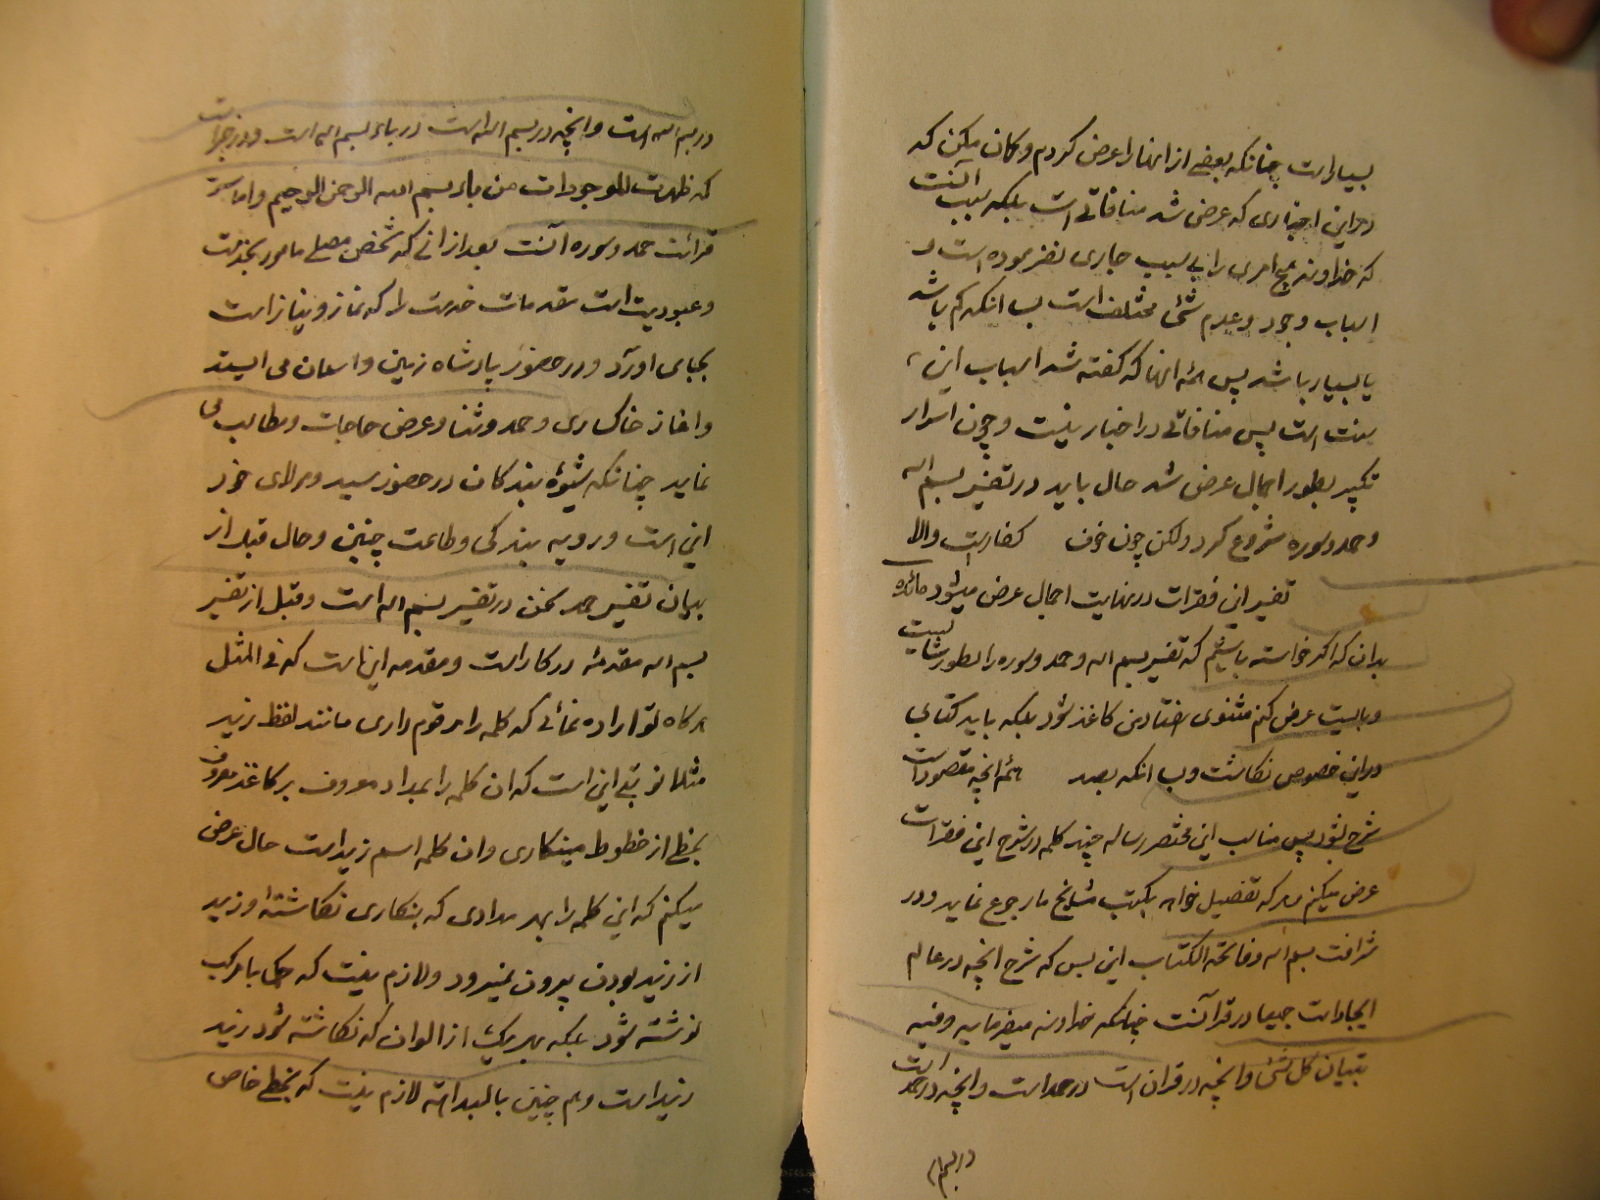 بسیار است چنانکه بعضی از انها را عرض کردم و کان میکن که
در این اخباری که عرض شد منافاتی است بلکه سبب آنست
که خداوند هیچ امری را بی سبب جاری نفرموده است و
اسباب وجود و عدم شئ مختلف است بسا انکه کم باشد
یا بسیار باشد پس همه اینها که گفته شد اسباب این
سنت است پس منافاتی در اخبار نیست و چون اسرار
تکبیر بطور اجمال عرض شد حال باید در تفسیر بسم اله
و حمد و سوره شروع کرد ولکن چون خوف کفار است والا
تفسیر این فقرات در نهایت اجمال عرض میشود
بدان که اکر خواسته باشیم که تفسیر بسم اله و حمد و سوره را بطور شایست
و بایست عرض کنم مثنوی هفتاد من کاغذ شود بلکه باید کتابی
در این خصوص نکاشت و ب انکه بصد همه انچه مقصود است
شرح نشود پس مناسب این مختصر رساله چند کلمه در شرح این فقرات
عرض میکنم و هر که تفصیل خواهد بکتب مشایخ ما رجوع نماید و در
شرافت بسم اله و فاتحة الکتاب این بس که شرح انچه در عالم
ایجاد است جمیعا در قرآنست چنانکه خداوند میفرماید و فیه
تبیان کل شئ و انچه در قران است در حمد است و انچه در حمد است
در بسم ا
در بسم اله است و انچه در بسم اله است در باء بسم اله است و در خبر است
که ظهرت الموجودات من باء بسم الله الرحمن الرحیم و اما سر
قرائت حمد و سوره آنست بعد از انی که شخص مصلی مامور بخدمت
و عبودیت است مقدمات خدمت را که نماز و نیاز است
بجای اورد و در حضور پادشاه زمین و اسمان می ایستد
و اغاز خاکساری و حمد و ثنا و عرض حاجات و مطالب می
نماید چنانکه شیوۀ بندکان در حضور سید و مولای خود
این است و رویه بندکی و طاعت چنین و حال قبل از
بیان تفسیر حمد سخن در تفسیر بسم اله است و قبل از تفسیر
بسم اله مقدمۀ در کار است و مقدمه این است که فی المثل
هرکاه تو اراده نمائی که کلمه را مرقوم داری مانند لفظ زید
مثلا نوشتن این است که ان کلمه را بمداد معروف بر کاغذ معروف
بخطی از خطوط مینکاری و ان کلمه اسم زید است حال عرض
میکنم که این کلمه را بهر مدادی که بنکاری نکاشتۀ و زید
از زید بودن بیرون نمیرود و لازم نیست که حکما با مرکب
نوشته شود بلکه بهر یک از الوان که نکاشته شود زید
زید است و هم چنین بالبداهه لازم نیست که بخطی خاص